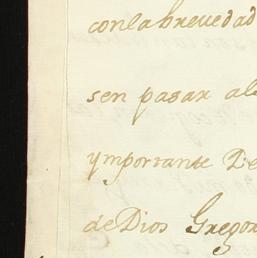 conla brevedad
sen pasar al
ymportante
de Dios Gregor